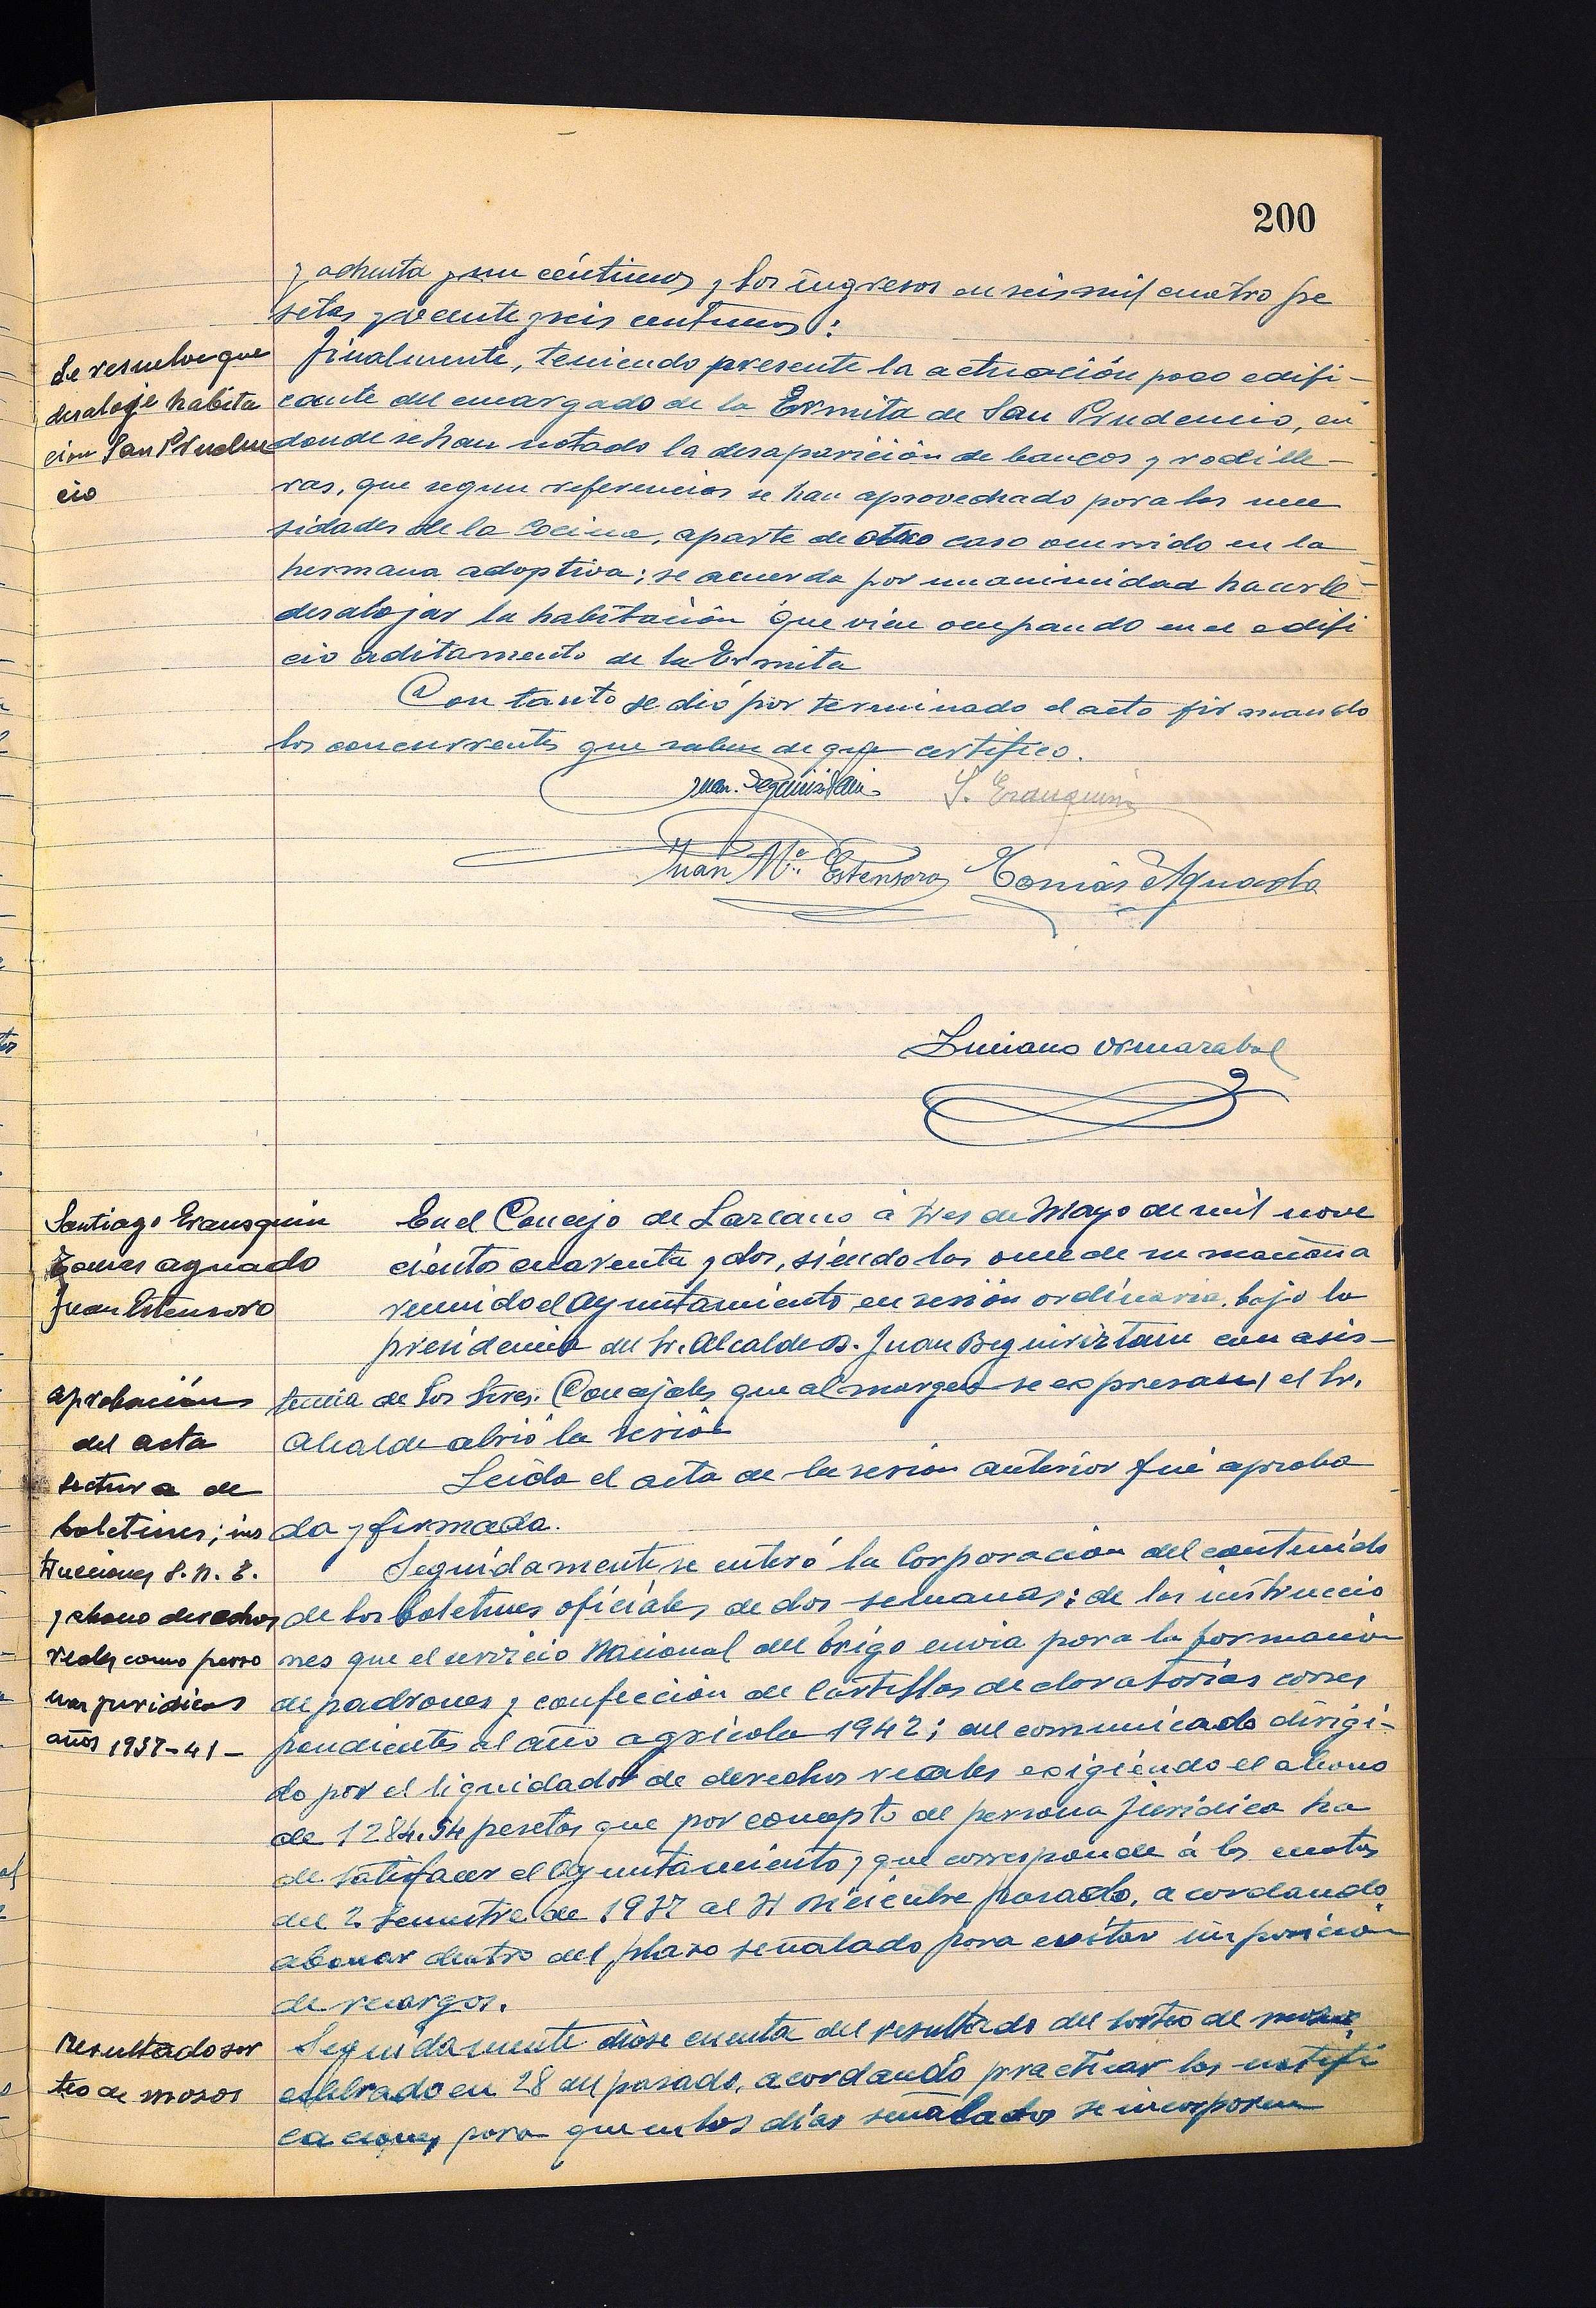 200
y ochenta y un céntimos y los ingresos en seis mil cuatro pe
setas y veinte y seis centimos:
Se resuelve que
desaloje habita
cion San Pruden
cio
Finalmente, teniendo presente la actuación poco edifi-
cante del encargado de la Ermita de San Prudencio, en
donde se han notado la desaparición de bancos y rodille-
ras, que segun referencias se han aprovechado para las nece
sidades de la cocina, aparte de otro caso ocurrido en la
hermana adoptiva; se acuerda por unanimidad hacerle
desalojar la habitación que viene ocupando en el edifi
cio aditamento de la Ermita
Con tanto se dió por terminado el acto firmando
los concurrentes que saben de que certifico.
Juan Beguiristain S. Eranquin
Juan Mª. Estensoro Tomás Aguado
Luciano Ormazabal
Santiago Erausquin
Tomas aguado
Juan Estensoro
En el Concejo de Lazcano á tres de Mayo de mil nove
ciento cuarenta y dos, siendo las once de su mañana
reunido el Ayuntamiento en sesión ordinaria, bajo la
presidencia del Sr. Alcalde D. Juan Beguiriztain con asis-
tencia de los Sres. Concejales que al margen se expresan, el Sr.
Alcalde abrió la sesión
aprobación
del acta
Leida el acta de la sesion anterior fué aproba
da y firmada.
lectura de
boletines; ins
trucciones S. N. T.
y abono derechos
reales como perso
nas juridicas
años 1937-41-
Seguidamente se enteró la Corporacion del contenido
de los boletines oficiales de dos semanas; de las instruccio
nes que el servicio Nacional del trigo envia para la formacion
de padrones y confección de Cartillas declaratorias corres
pondientes al año agricola 1942; del comunicado dirigi-
do por el liquidador de derechos reales exigiendo el abono
de 1284.54 pesetas que por concepto de persona juridica ha
de satisfacer el Ayuntamiento y que corresponde á las cuotas
del 2 semestre de 1937 al 31 Diciembre pasado, acordando
abonar dentro del plazo señalado para evitar imposición
de recargos.
Resultado sor
teo de mozos
Seguidamente dióse cuenta del resultado del sorteo de mozos
celebrado en 28 del pasado, acordando practicar las notifi
caciones para que en los días señalados se incorporen